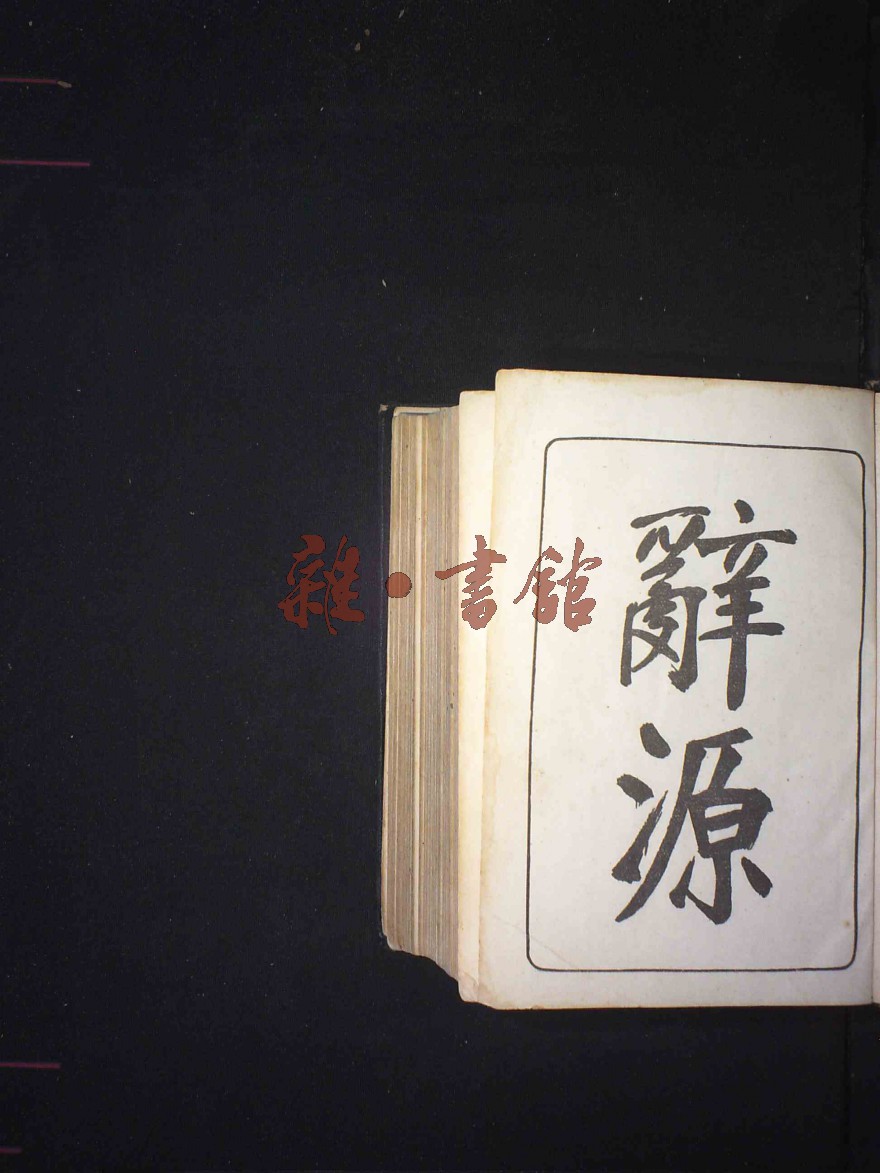 辭源
雜·書館